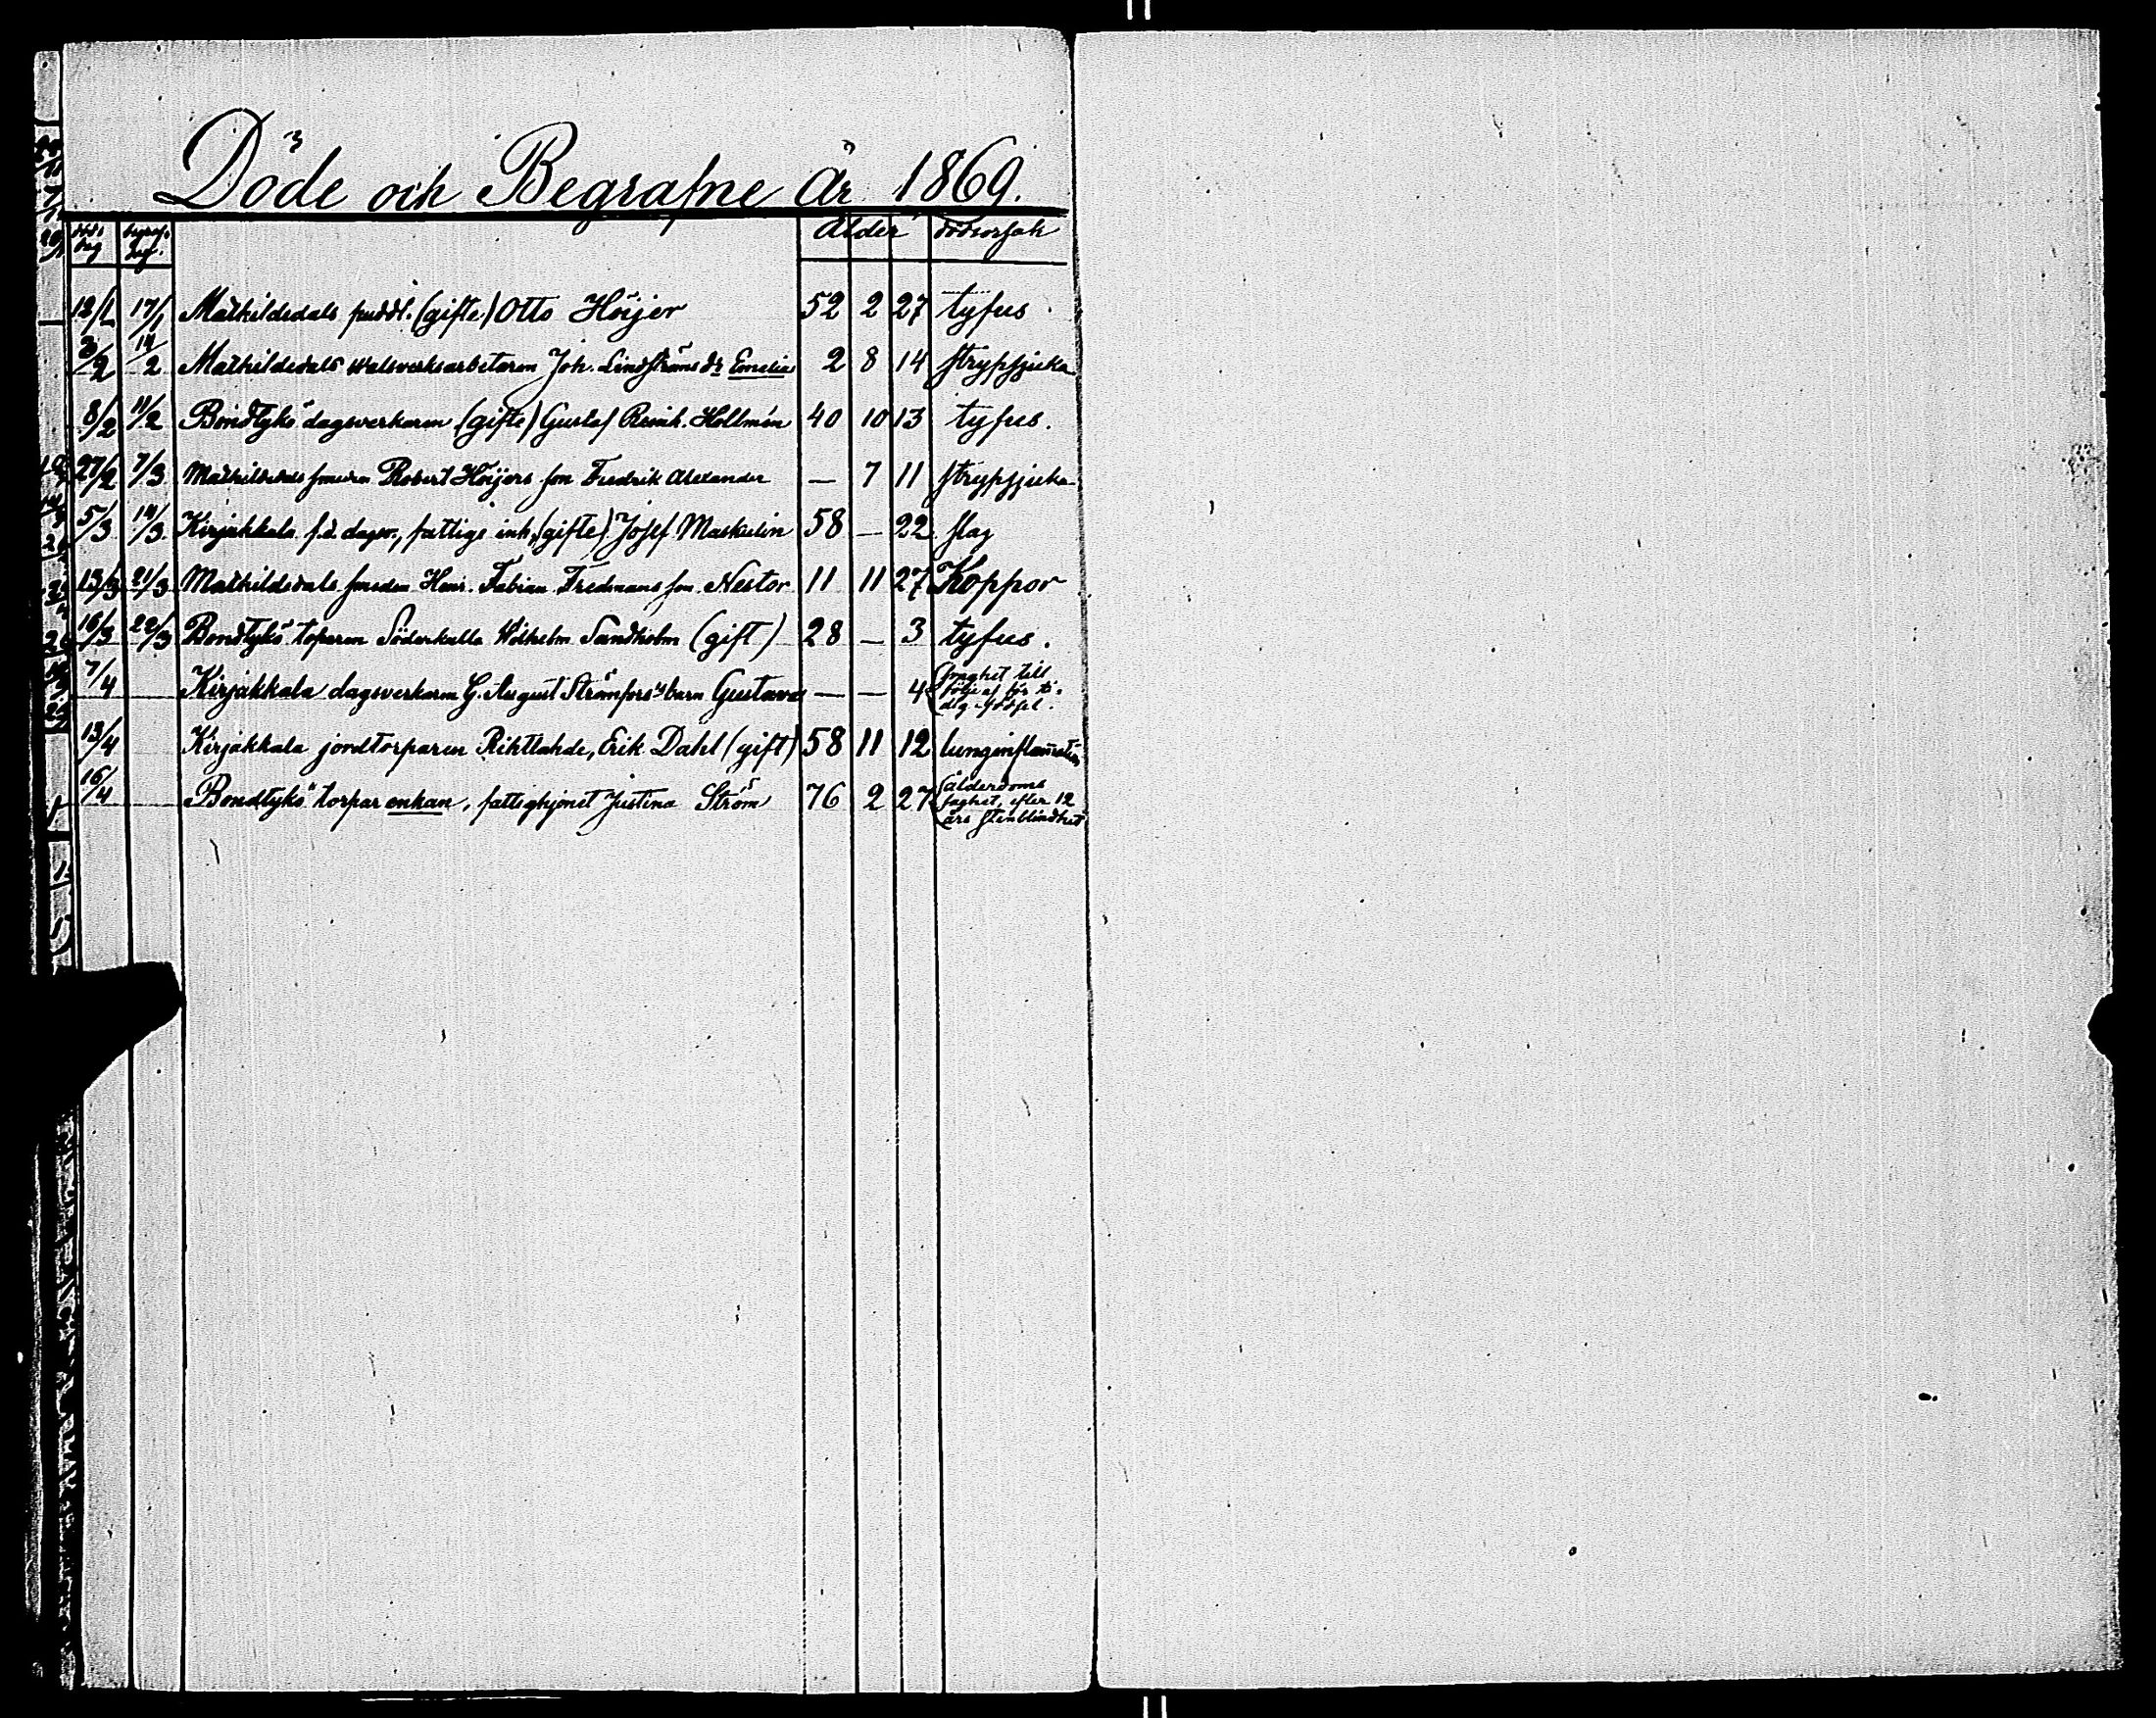 Döde och Begrafne år 1869.
döds dag begrafn. dag. Ålder dödsorsak
12/1 17/1 Mathildedals puddl. (gifte) Otto Höijer 52 2 27 tyfus
3/2 14/2 Mathildedals walsverksarbetaren Joh. Lindströms dr Emelia 2 8 14 strypsjuka
8/2 11/2 Bondtykö dagsverkaren (gifte) Gustaf Reinh. Hellmén 40 10 13 tyfus.
27/2 7/3 Mathildedals smeden Robert Höijers son Fredrik Alexander — 7 11 strypsjuka
5/3 14/3 Kirjakkala f.d. dagsv., fattige inh. (gifte) Josef Maskulin 58 — 22 slag
13/3 21/3 Mathildedals smeden Henr. Fabian Fredmans son Nestor 11 11 27 Koppor
16/3 22/3 Bondtykö toparen Söderkulla Wilhelm Sandholm (gift) 28 — 3 tyfus.
7/4 Kirjakkala dagsverkaren G. August Strömfors's barn Gustava — — 4 svaghet till
följe af för ti-
dig födsel.
13/4 Kirjakkala jordtorparen Rihtlahde, Erik Dahl (gift) 58 11 12 lunginflamation
16/4 Bondtykö torpar enkan, fattighjonet Justina Ström 76 2 27 ålderdoms
saghet, efter 12
års stenblindhet